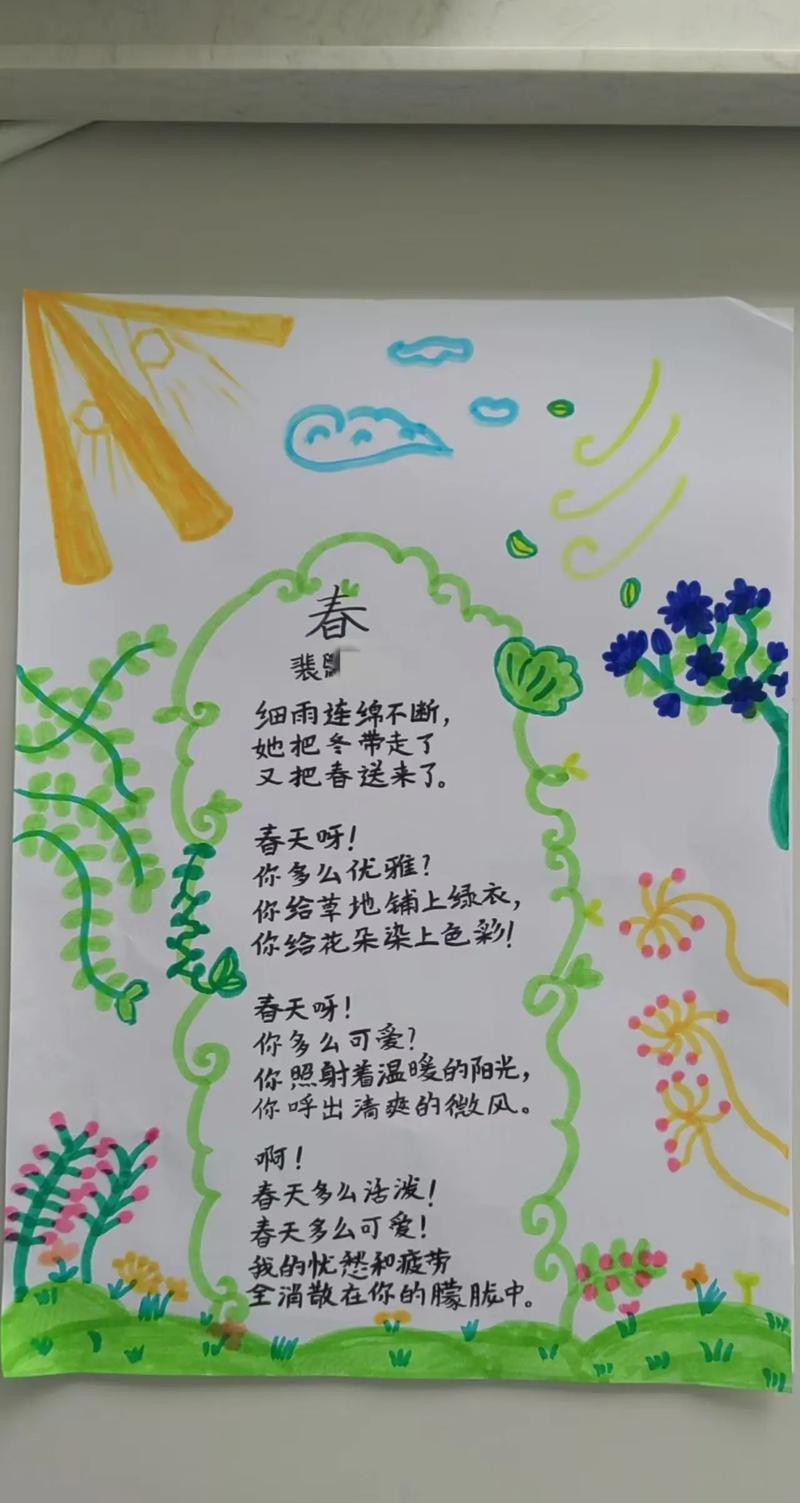 春
裴
细雨连绵不断，
她把冬带走了
又把春送来了。
春天呀！
你多么优雅？
你给草地铺上绿衣，
你给花朵染上色彩！
春天呀！
你多么可爱？
你照射着温暖的阳光，
你呼出清爽的微风。
啊！
春天多么活泼！
春天多么可爱！
我的忧愁和疲劳
全消散在你的朦胧中。